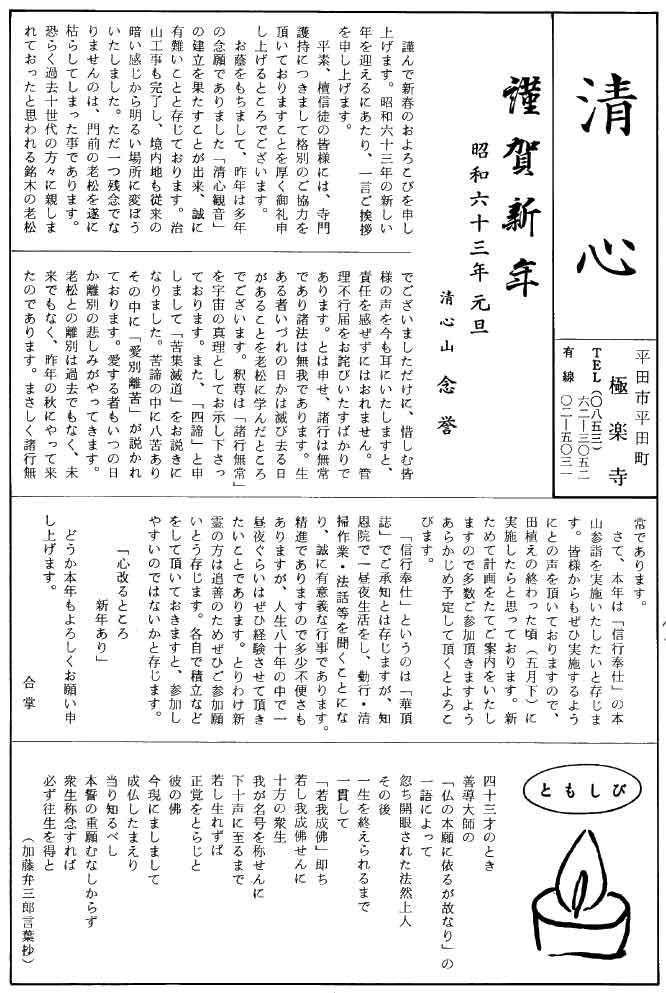 清心
平田市平田町
極楽寺
TEL(〇八五三)
六二―三〇五二
有線 〇二―五〇三一
謹賀新年
昭和六十三年元旦
清心山 念誉
謹んで新春のおよろこびを申し
上げます。昭和六十三年の新しい
年を迎えるにあたり、一言ご挨拶
を申し上げます。
平素、檀信徒の皆様には、寺門
護持につきまして格別のご協力を
頂いておりますことを厚く御礼申
し上げるところでございます。
お蔭をもちまして、昨年は多年
の念願でありました「清心観音」
の建立を果たすことが出来、誠に
有難いことと存じております。治
山工事も完了し、境内地も従来の
暗い感じから明るい場所に変ぼう
いたしました。ただ一つ残念でな
りませんのは、門前の老松を遂に
枯らしてしまった事であります。
恐らく過去十世代の方々に親しま
れておったと思われる銘木の老松
でございましただけに、惜しむ皆
様の声を今も耳にいたしますと、
責任を感ぜずにはおれません。管
理不行届をお詫びいたすばかりで
あります。とは申せ、諸行は無常
であり諸法は無我であります。生
ある者いづれの日かは滅び去る日
があることを老松に学んだところ
でございます。釈尊は「諸行無常」
を宇宙の真理としてお示し下さっ
ております。また、「四諦」と申
しまして「苦集滅道」をお説きに
なりました。苦諦の中に八苦あり
その中に「愛別離苦」が説かれ
ております。愛する者もいつの日
か離別の悲しみがやってきます。
老松との離別は過去でもなく、未
来でもなく、昨年の秋にやって来
たのであります。まさしく諸行無
常であります。
さて、本年は「信行奉仕」の本
山参詣を実施いたしたいと存じま
す。皆様からもぜひ実施するよう
にとの声を頂いておりますので、
田植えの終わった頃(五月下)に
実施したらと思っております。新
ためて計画をたてご案内をいたし
ますので多数ご参加頂きますよう
あらかじめ予定して頂くとよろこ
びます。
「信行奉仕」というのは「華頂
誌」でご承知とは存じますが、知
恩院で一昼夜生活をし、勤行・清
掃作業・法話等を聞くことにな
り、誠に有意義な行事であります。
精進でありますので多少不便さも
ありますが、人生八十年の中で一
昼夜ぐらいはぜひ経験させて頂き
たいことであります。とりわけ新
霊の方は追善のためぜひご参加願
いとう存じます。各自で積立など
をして頂いておきますと、参加し
やすいのではないかと存じます。
「心改るところ
新年あり」
どうか本年もよろしくお願い申
し上げます。
合掌
ともしび
四十三才のとき
善導大師の
「仏の本願に依るが故なり」の
一語によって
忽ち開眼された法然上人
その後
一生を終えられるまで
一貫して
「若我成佛」即ち
若し我成佛せんに
十方の衆生
我が名号を称せんに
下十声に至るまで
若し生れずば
正覚をとらじと
彼の佛
今現にましまして
成仏したまえり
当り知るべし
本誓の重願むなしからず
衆生称念すれば
必ず往生を得と
(加藤弁三郎言葉抄)